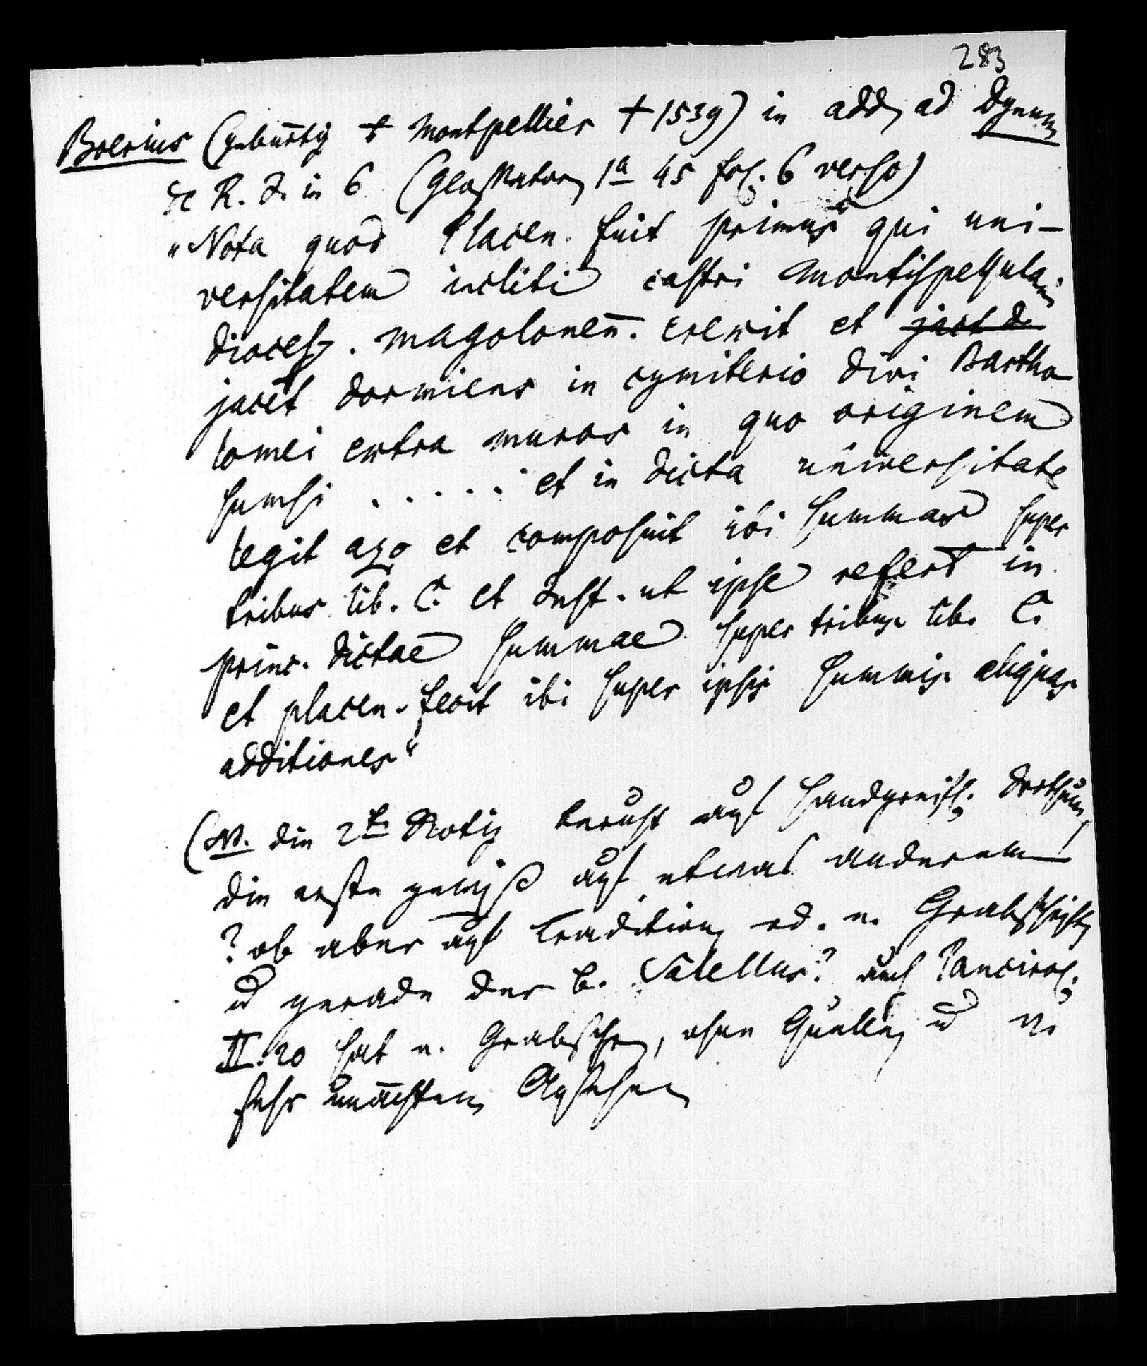 283
Boerius (gebürtig v Montpellier † 1539) in add. ad Dynum
de R. J. in 6 (Glossatoren 1a 45 fol. 6 verso)
"Nota quod Placen. fuit primus qui uni-
versitatem incliti castri Montispessulani
dioces. magolonen. erexit et jacet d
jacet dormiens in cymiterio divi Bartho
lomei extra muros in quo originem
sumsi ..... et in dicta universitate
legit azo et composuit ibi summas super
tribus lib. C. et Inst. ut ipse refert in
princ. dictae summae super tribus lib. C.
et placen. fecit ibi super ipsis summis aliquas
additiones"
(NB. die 2te Notiz beruht auf handgreifl.
die erste gewiß auf etwas anderem
? ob aber auf Tradition od. e. Grabschrift
u gerade der b. Savellus? auch Pancirol.
II. 20 hat e. Grabschr., ohne Quelle u v.
sehr unächtem Ansehen